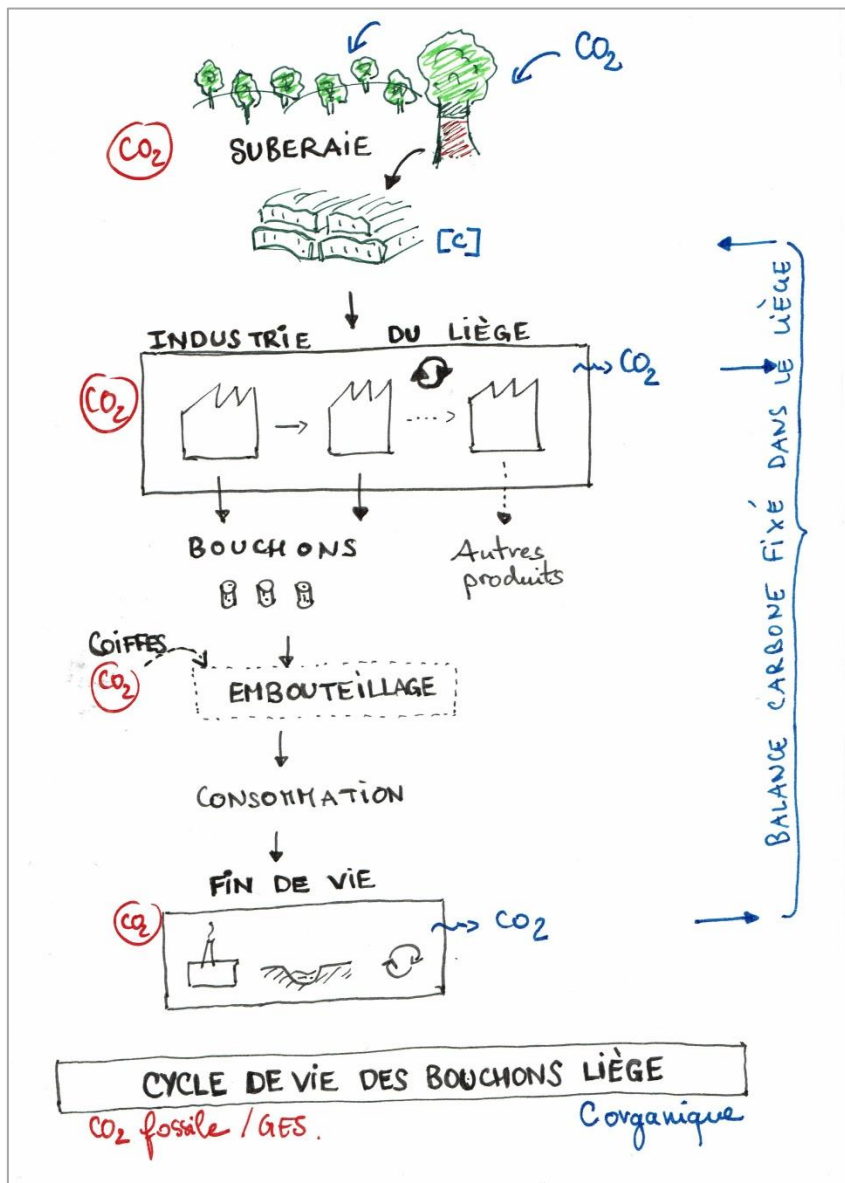 CO2
CO2
SUBERAIE
[C]
INDUSTRIE DU LIÈGE
CO2
CO2
BOUCHONS
Autres
produits
COIFFES
CO2
EMBOUTEILLAGE
CONSOMMATION
FIN DE VIE
CO2
CO2
BALANCE CARBONE FIXÉ DANS LE LIÈGE
CYCLE DE VIE DES BOUCHONS LIÈGE
CO2 fossile / GES.
Corganique